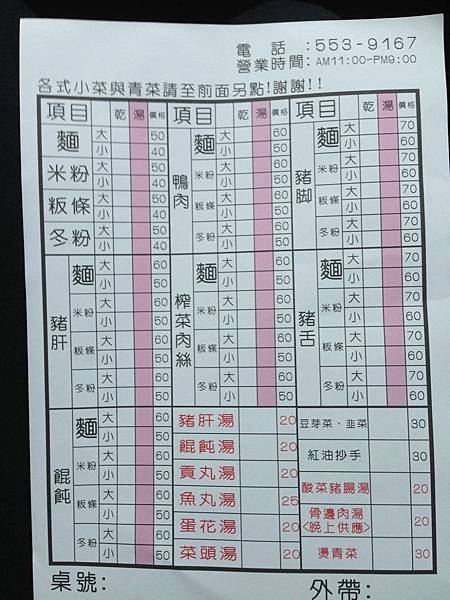 電話:553-9167
營業時間:AM11:00-PM9:00
各式小菜與青菜請至前面另點!謝謝!!
項目 乾 湯 價格 項目 乾 湯 價格 項目 乾 湯 價格
麵 大 50
小 40
米粉 大 50
小 40
粄條 大 50
小 40
冬粉 大 50
小 40
鴨肉
麵 大 60
小 50
米粉 大 60
小 50
粄條 大 60
小 50
冬粉 大 60
小 50
豬脚
麵 大 70
小 60
米粉 大 70
小 60
粄條 大 70
小 60
冬粉 大 70
小 60
豬肝
麵 大 60
小 50
米粉 大 60
小 50
粄條 大 60
小 50
冬粉 大 60
小 50
榨菜肉絲
麵 大 60
小 50
米粉 大 60
小 50
粄條 大 60
小 50
冬粉 大 60
小 50
豬舌
麵 大 70
小 60
米粉 大 70
小 60
粄條 大 70
小 60
冬粉 大 70
小 60
餛飩
麵 大 60
小 50
米粉 大 60
小 50
粄條 大 60
小 50
冬粉 大 60
小 50
豬肝湯 20
餛飩湯 20
貢丸湯 20
魚丸湯 25
蛋花湯 20
菜頭湯 20
豆芽菜、韭菜 30
紅油抄手 30
酸菜豬腸湯 20
骨邊肉湯
<晚上供應> 20
燙青菜 30
桌號: 外帶: